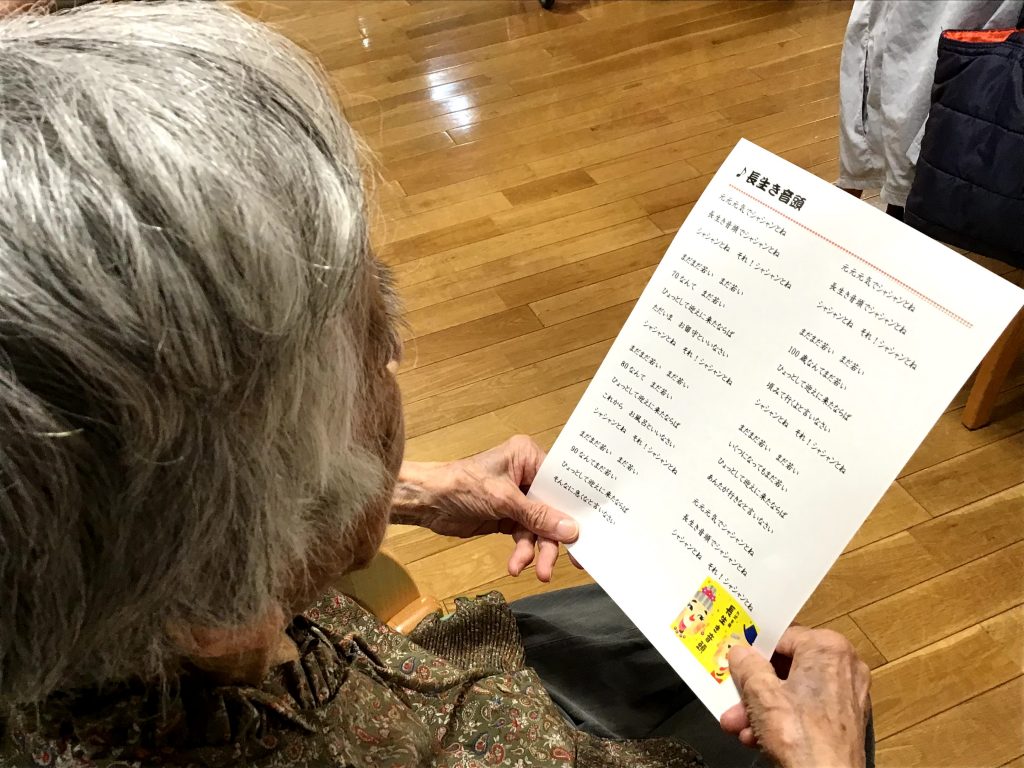 ♪長生き音頭
元元元気でシャシャンとね
長生き音頭でシャシャンとね
シャシャンとね それ！シャシャンとね
まだまだ若い まだ若い
70なんて まだ若い
ひょっとして迎えに来たならば
ただいま お留守といいなさい
シャシャンとね それ！シャシャンとね
まだまだ若い まだ若い
80なんて まだ若い
ひょっとして迎えに来たならば
これから お風呂といいなさい
シャシャンとね それ！シャシャンとね
まだまだ若い まだ若い
90なんてまだ若い
ひょっとして迎えに来たならば
そんなに急ぐなと言いなさい
元元元気でシャシャンとね
長生き音頭でシャシャンとね
シャシャンとね それ！シャシャンとね
まだまだ若い まだ若い
100歳なんてまだ若い
ひょっとして迎えに来たならば
頃みて行くよと言いなさい
シャシャンとね それ！シャシャンとね
まだまだ若い まだ若い
いくつになってもまだ若い
ひょっとして迎えに来たならば
あんたが行きなと言いなさい
元元元気でシャシャンとね
長生き音頭でシャシャンとね
シャシャンとね それ！シャシャンとね
長生き音頭